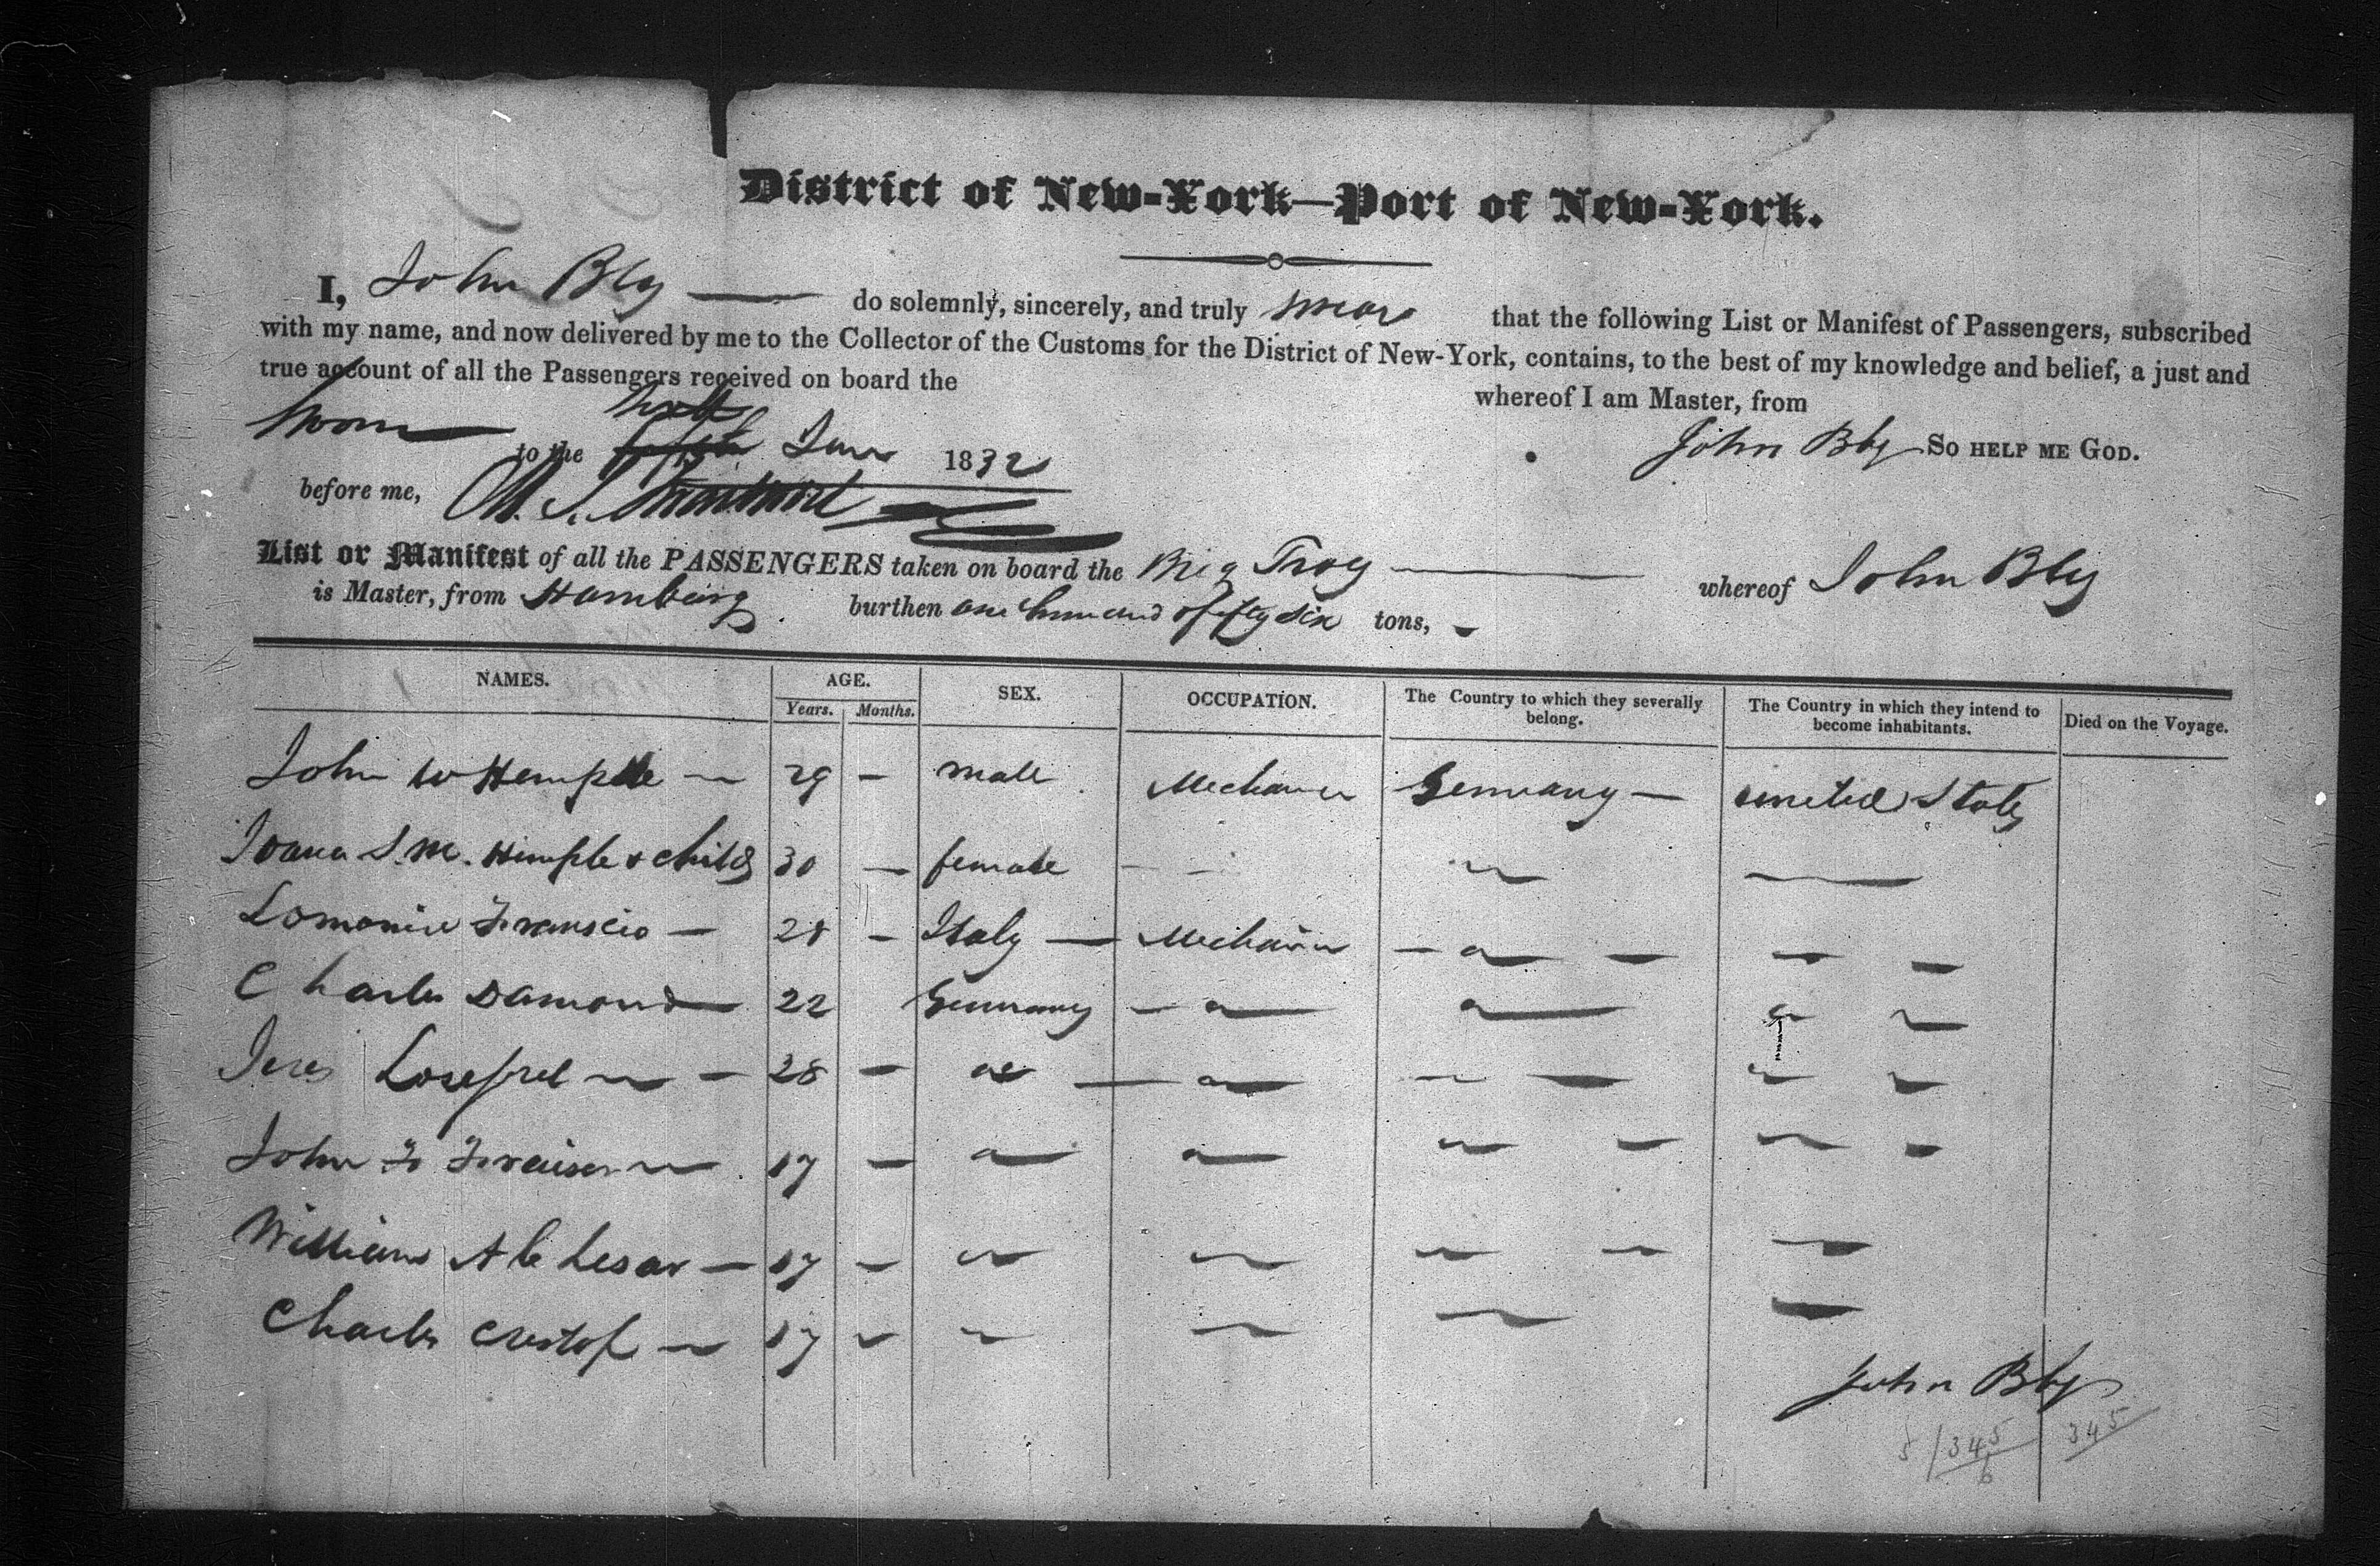 District of New-York—Port of New-York.
I, John Bly — do solemnly, sincerely, and truly swear that the following List or Manifest of Passengers, subscribed
with my name, and now delivered by me to the Collector of the Customs for the District of New-York, contains, to the best of my knowledge and belief, a just and
true account of all the Passengers received on board the whereof I am Master, from
Sworn to the June 1832 John Bly So help me God.
before me,
List or Manifest of all the PASSENGERS taken on board the Brig Troy — whereof John Bly
is Master, from Hamburg burthen one hundred & fifty six tons,
NAMES. AGE. SEX. OCCUPATION. The Country to which they severally belong. The Country in which they intend to become inhabitants. Died on the Voyage.
Years. Months.
John W Hemple — 29 — male Mechanic Germany — united States
S. M. Himple & child 30 — female
28 — Italy — Mechanic
Charles Damond — 22 Germany
28 —
John F 17 —
William A C Lesar — 17 —
Charles Crestof — 17
John Bly
5/345 345
6